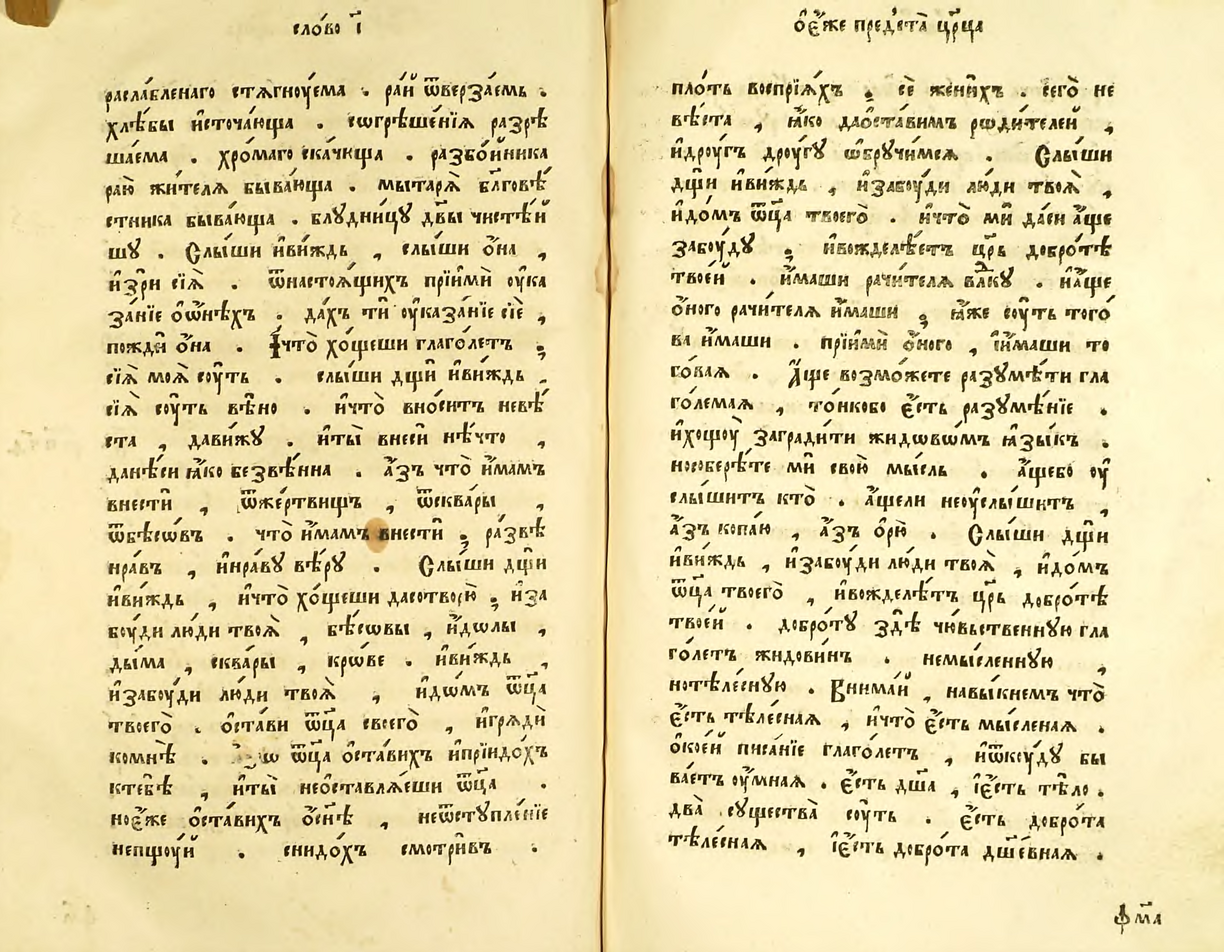 сло́во і҃
расла́бленаго стѧ́гноуема . ра́й ѿверза́емь .
хлѣ́бы и҆сточа́юща . сѡгрѣше́нїѧ разрѣ
ша́ема . хро́маго ска́чюща . разбо́йника
раю̀ жи́телѧ быва́юща . мытарѧ̀ бл҃говѣ́
стника быва́юща . блꙋдни́цꙋ дв҃ы чистѣ́й
шꙋ . Слы́ши и҆ви́ждь , слы́ши ѻ҆́на ,
и҆́зри сїѧ̀ . ѿнастоѧ́щихъ прїимѝ оу҆ка
за́нїе ѻ҆ѻ҆́нѣхъ . да́хъ тѝ оу҆каза́нїе сїѐ ,
пождѝ ѻ҆́на . І҆что̀ хо́щеши глаго́летъ ;
сїѧ̀ моѧ̀ соу́ть . слы́ши дщ҃и и҆ви́ждь ,
сїѧ̀ соу́ть вѣ́но . и҆что̀ вно́ситъ невѣ́
ста , дави́жꙋ . и҆ты̀ внесѝ нѣ́что ,
данѣ́си ꙗ҆́ко безвѣ́нна . а҆́зъ что̀ и҆́мамъ
внестѝ , ѿже́ртвищъ , ѿсква́ры ,
ѿбѣ́сѡвъ . что̀ и҆́мамъ внестѝ ; ра́звѣ
нра́въ , и҆нра́вꙋ вѣ́рꙋ . Слы́ши дщ҃и
и҆ви́ждь , и҆что̀ хо́щеши дасотворю̀ ; и҆за
боу́ди лю́ди твоѧ̀ , бѣ́сѡвы , и҆́дѡлы ,
ды́ма , сква́ры , кро́ве . и҆ви́ждь ,
и҆забоу́ди лю́ди твоѧ̀ , и҆до́мъ ѿц҃а
твоего̀ . ѻ҆ста́ви ѿц҃а своего̀ , и҆грѧдѝ
комнѣ̀ . ѿц҃а ѻ҆ста́вихъ и҆прїидо́хъ
ктебѣ̀ , и҆ты̀ неѻ҆ставлѧ́еши ѿц҃а .
ное҆́же ѻ҆ста́вихъ ѻ҆сн҃ѣ , неѿстꙋпле́нїе
непщоу́й . снидо́хъ смотри́въ .
ѻ҆е҆́же предста̀ цр҃ца
пло́ть воспрїѧ́хъ . се̏ жени́хъ . сего̀ не
вѣ́ста , ꙗ҆́ко даѻ҆ста́вимъ роди́телей ,
и҆дроу́гъ дроу́гꙋ ѡ҆брꙋчи́мсѧ . Слы́ши
дщ҃и и҆ви́ждь , и҆забоу́ди лю́ди твоѧ̀ ,
и҆до́мъ ѿц҃а твоего̀ . и҆что̀ мѝ да́си а҆́ще
забоу́дꙋ ; и҆вожделѣ́етъ цр҃ь добро́тѣ
твое́й . и҆́маши рачи́телѧ влⷣкꙋ . и҆а҆́ще
ѻ҆́ного рачи́телѧ и҆́маши , ꙗ҆́же соу́ть того̀
ва и҆́маши . прїимѝ ѻ҆́ного , і҆и҆́маши то
говаѧ . А҆́ще возмо́жете разꙋмѣ́ти гла
го́лемаѧ , то́нкобо є҆́сть разꙋмѣ́нїе .
и҆хощоу̀ загради́ти жидовѡ́мъ ꙗ҆зы́къ .
нособерѣ́те мѝ свою̀ мы́сль . а҆́щебо оу҆
слы́шитъ кто̀ . а҆́щели неоу҆слы́шитъ ,
а҆́зъ копа́ю , а҆́зъ ѻ҆рю̀ . Слы́ши дщ҃и
и҆ви́ждь , и҆забоу́ди лю́ди твоѧ̀ , и҆до́мъ
ѿц҃а твоего̀ , и҆вожделѣ́етъ цр҃ь добро́тѣ
твое́й . добро́тꙋ здѣ̀ чю́вьственнꙋю гла
го́летъ жидови́нъ . немы́сленнꙋю ,
нотѣле́снꙋю . Внима́й , навы́кнемъ что̀
є҆́сть тѣле́снаѧ , и҆что̀ є҆́сть мы́сленаѧ .
ѻ҆кое́й писа́нїе глаго́летъ , и҆ѿкоу́дꙋ бы
ва́етъ оу҆́мнаѧ . є҆́сть дш҃а , і҆є҆́сть тѣ́ло .
два̀ сꙋщества̀ соу́ть . є҆́сть добро́та
тѣле́снаѧ , і҆є҆́сть добро́та дш҃е́внаѧ .
ф҃ма